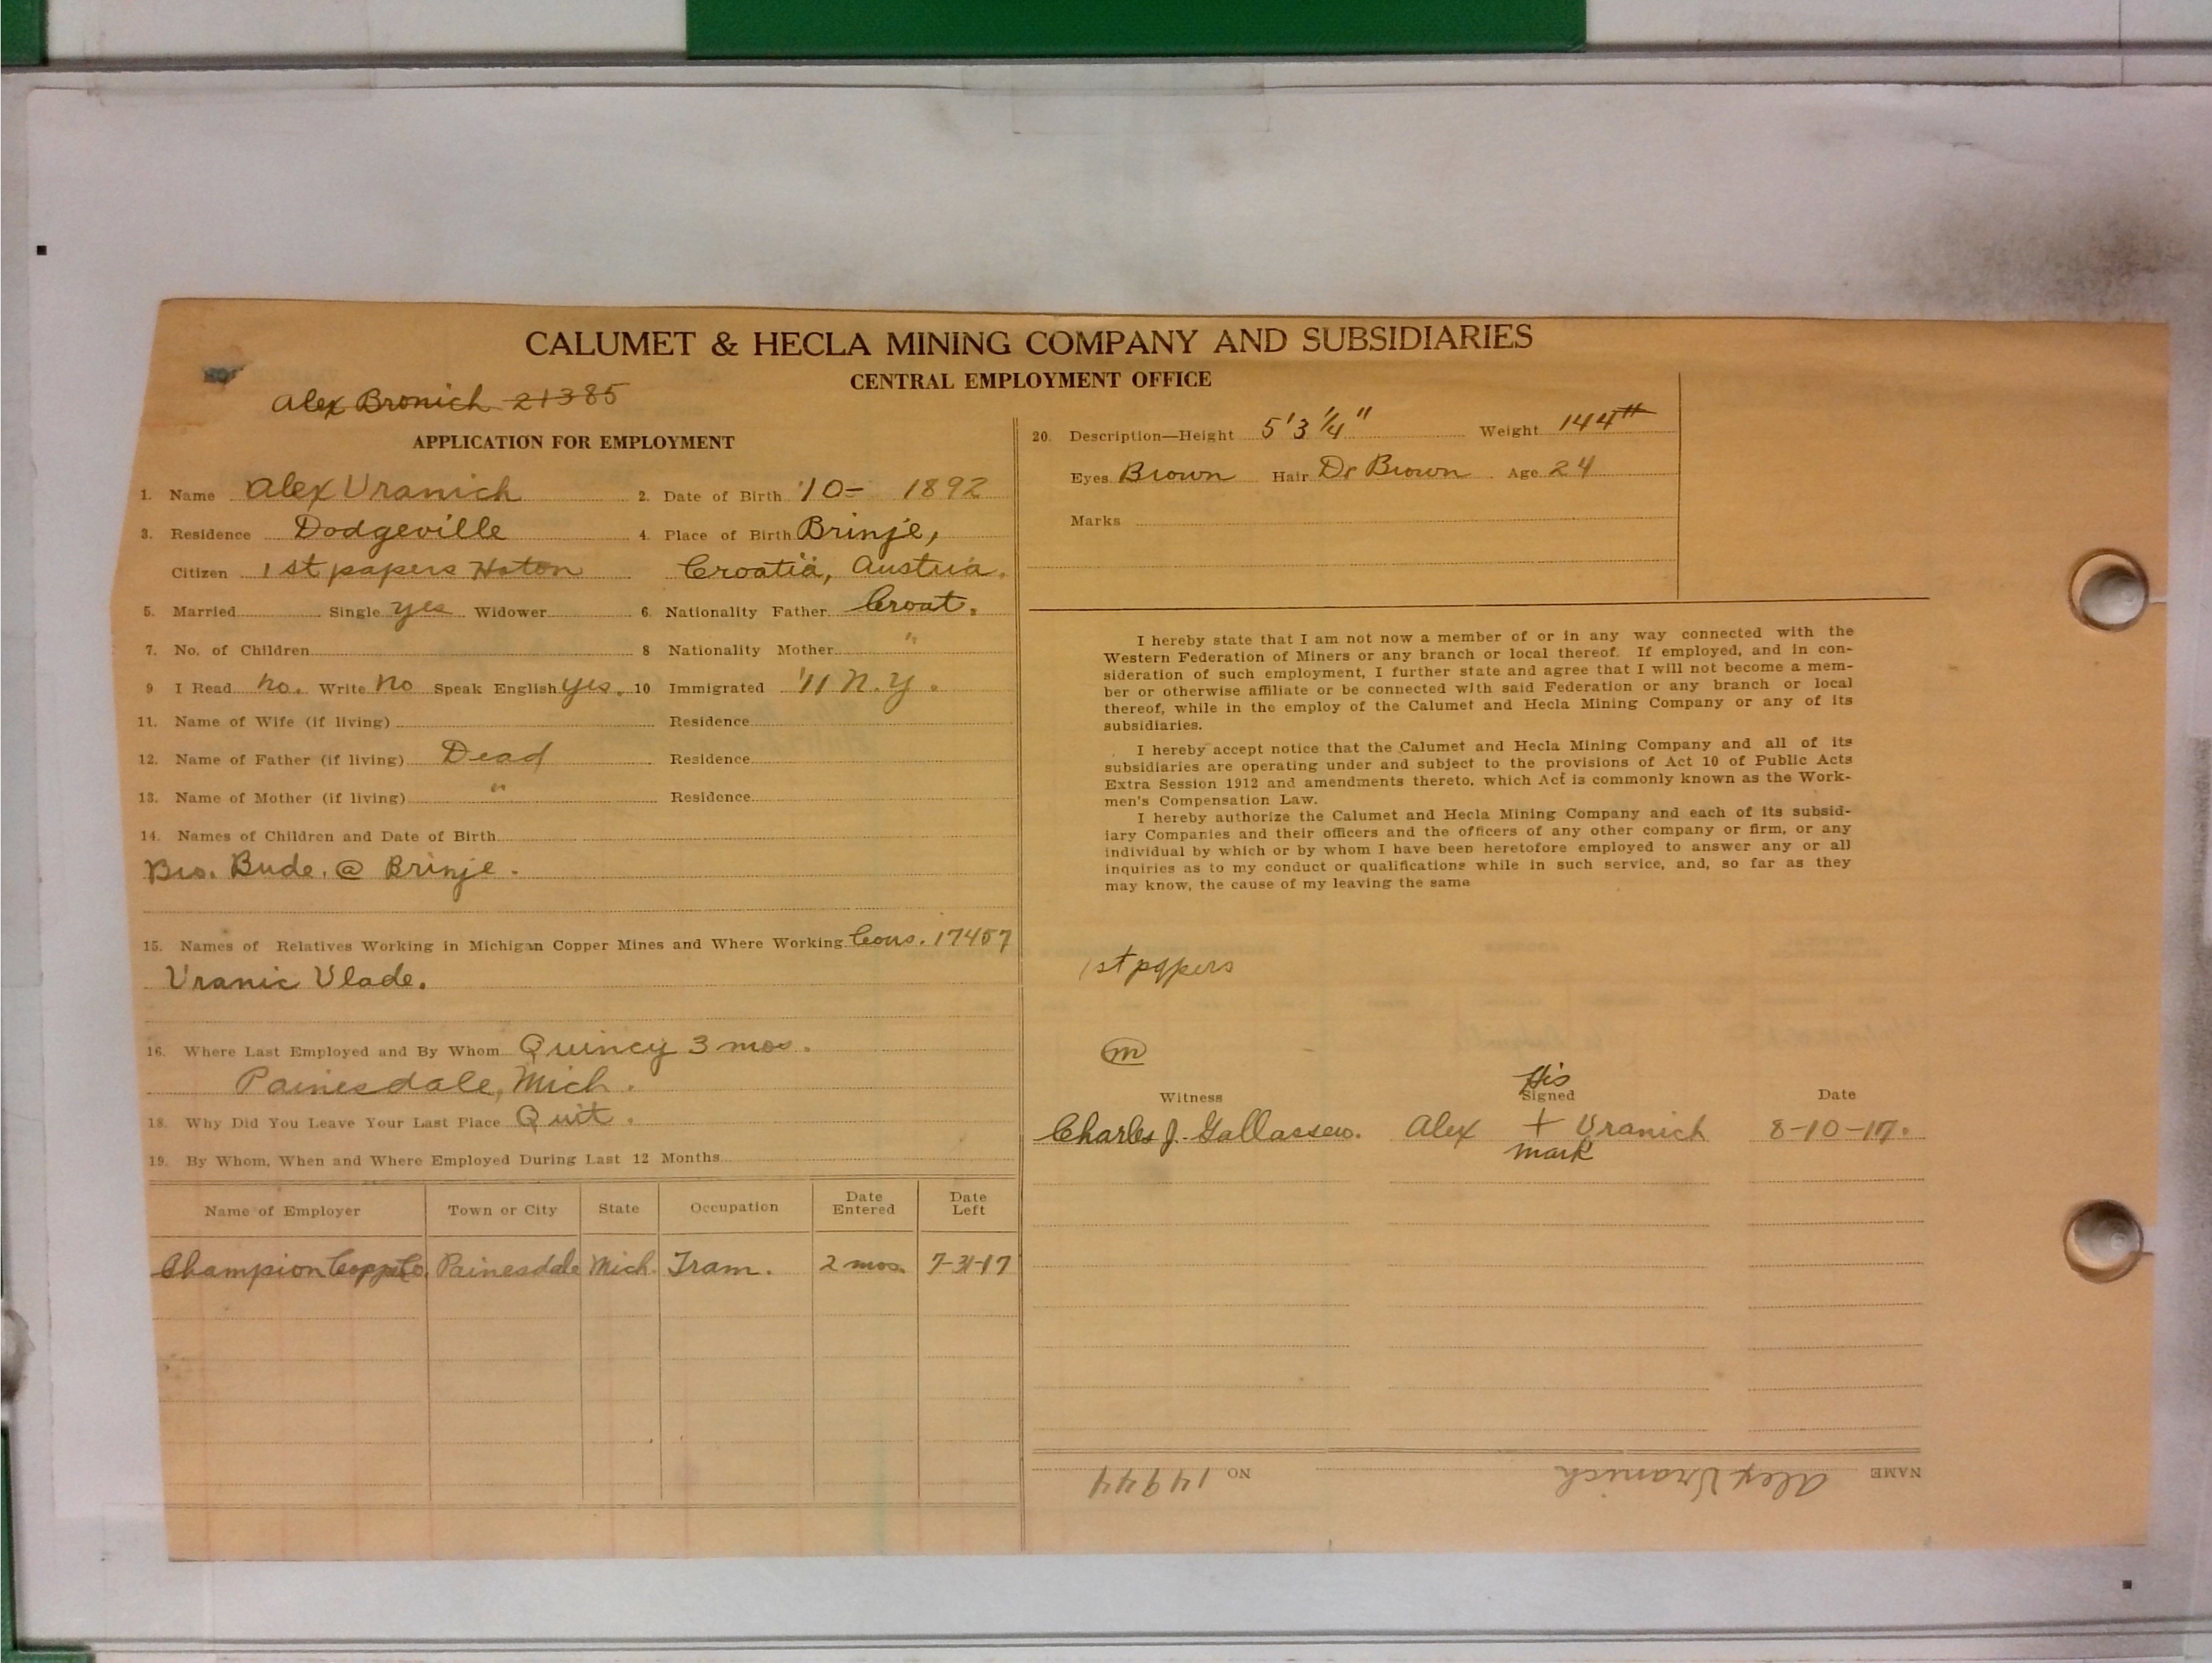 CALUMET & HECLA MINING COMPANY AND SUBSIDIARIES
CENTRAL EMPLOYMENT OFFICE
Alex Bronich 21385
APPLICATION FOR EMPLOYMENT
1. Name Alex Vranich 2. Date of Birth '10- 1892
3. Residence Dodgeville 4. Place of Birth Brinje,
Citizen 1st papers Hoton Croatia, Austria.
5. Married Single yes Widower 6. Nationality Father Croat.
7. No. of Children 8 Nationality Mother "
9 I Read no. Write no Speak English yes. 10 Immigrated '11 N.Y.
11. Name of Wife (if living) Residence
12. Name of Father (if living) Dead Residence
13. Name of Mother (if living) " Residence
14. Names of Children and Date of Birth
Bro. Bude. @ Brinje.
15. Names of Relatives Working in Michigan Copper Mines and Where Working Cous. 17457
Vranic Vlade.
16. Where Last Employed and By Whom Quincy 3 mos.
Painesdale, Mich.
18. Why Did You Leave Your Last Place Quit.
19. By Whom, When and Where Employed During Last 12 Months
Name of Employer Town or City State Occupation Date Entered Date Left
Champion Copp Co. Painesdale Mich. Tram. 2 mos. 7-31-17
20. Description—Height 5'3 1/4" Weight 144#
Eyes Brown Hair Dr Brown Age 24
Marks
I hereby state that I am not now a member of or in any way connected with the
Western Federation of Miners or any branch or local thereof. If employed, and in con-
sideration of such employment, I further state and agree that I will not become a mem-
ber or otherwise affiliate or be connected with said Federation or any branch or local
thereof, while in the employ of the Calumet and Hecla Mining Company or any of its
subsidiaries.
I hereby accept notice that the Calumet and Hecla Mining Company and all of its
subsidiaries are operating under and subject to the provisions of Act 10 of Public Acts
Extra Session 1912 and amendments thereto, which Act is commonly known as the Work-
men's Compensation Law.
I hereby authorize the Calumet and Hecla Mining Company and each of its subsid-
iary Companies and their officers and the officers of any other company or firm, or any
individual by which or by whom I have been heretofore employed to answer any or all
inquiries as to my conduct or qualifications while in such service, and, so far as they
may know, the cause of my leaving the same
1st papers
m
His
Witness Signed Date
Charles J. Alex + Vranich 8-10-17.
mark
NAME Alex Vranich NO 14944